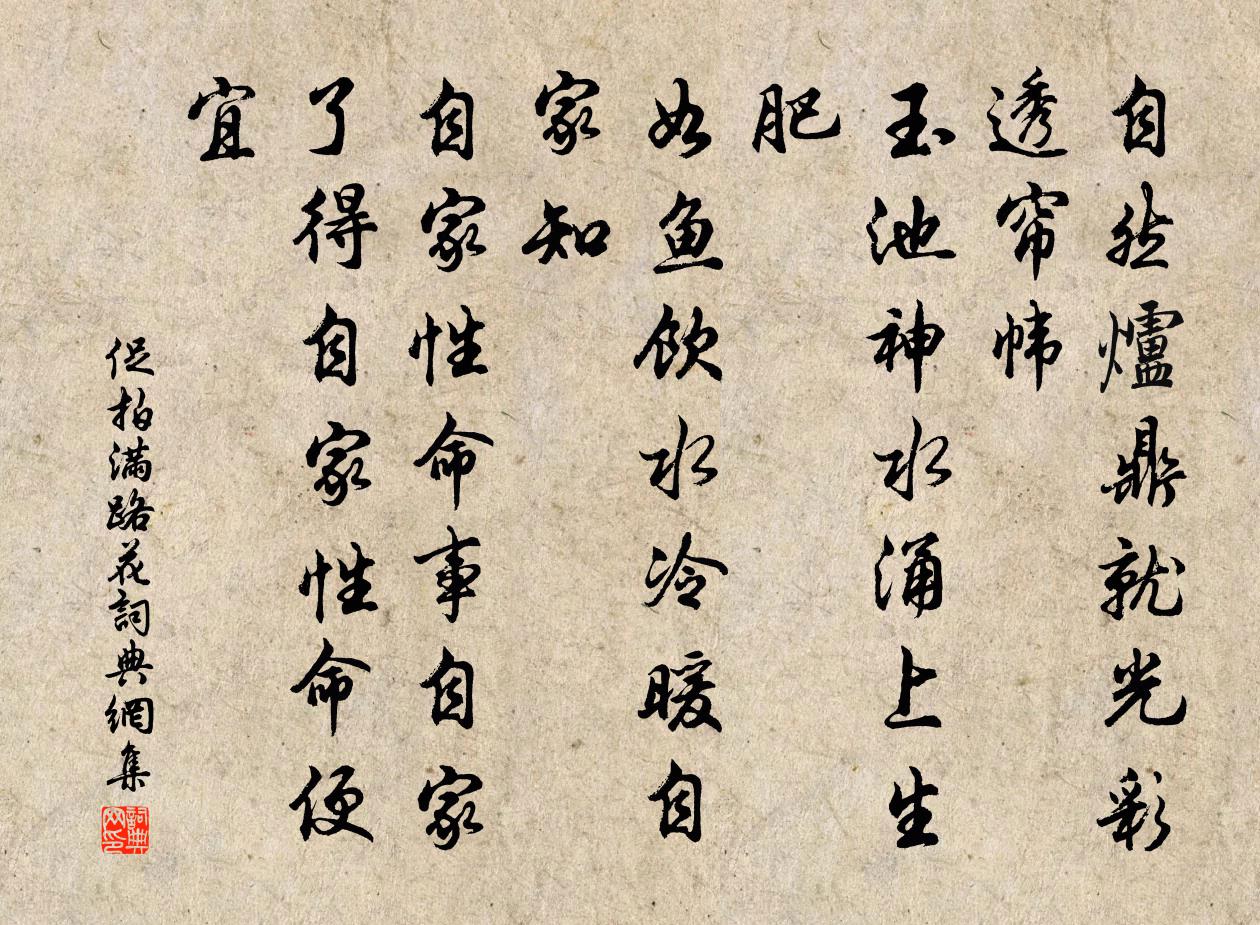 自然爐鼎就光彩
透帘帏
玉池神水涌上生
肥
如鱼飲水冷暖自
家知
自家性命事自家
了得自家性命便
宜
促拍满路花詞典網集
詞典网印